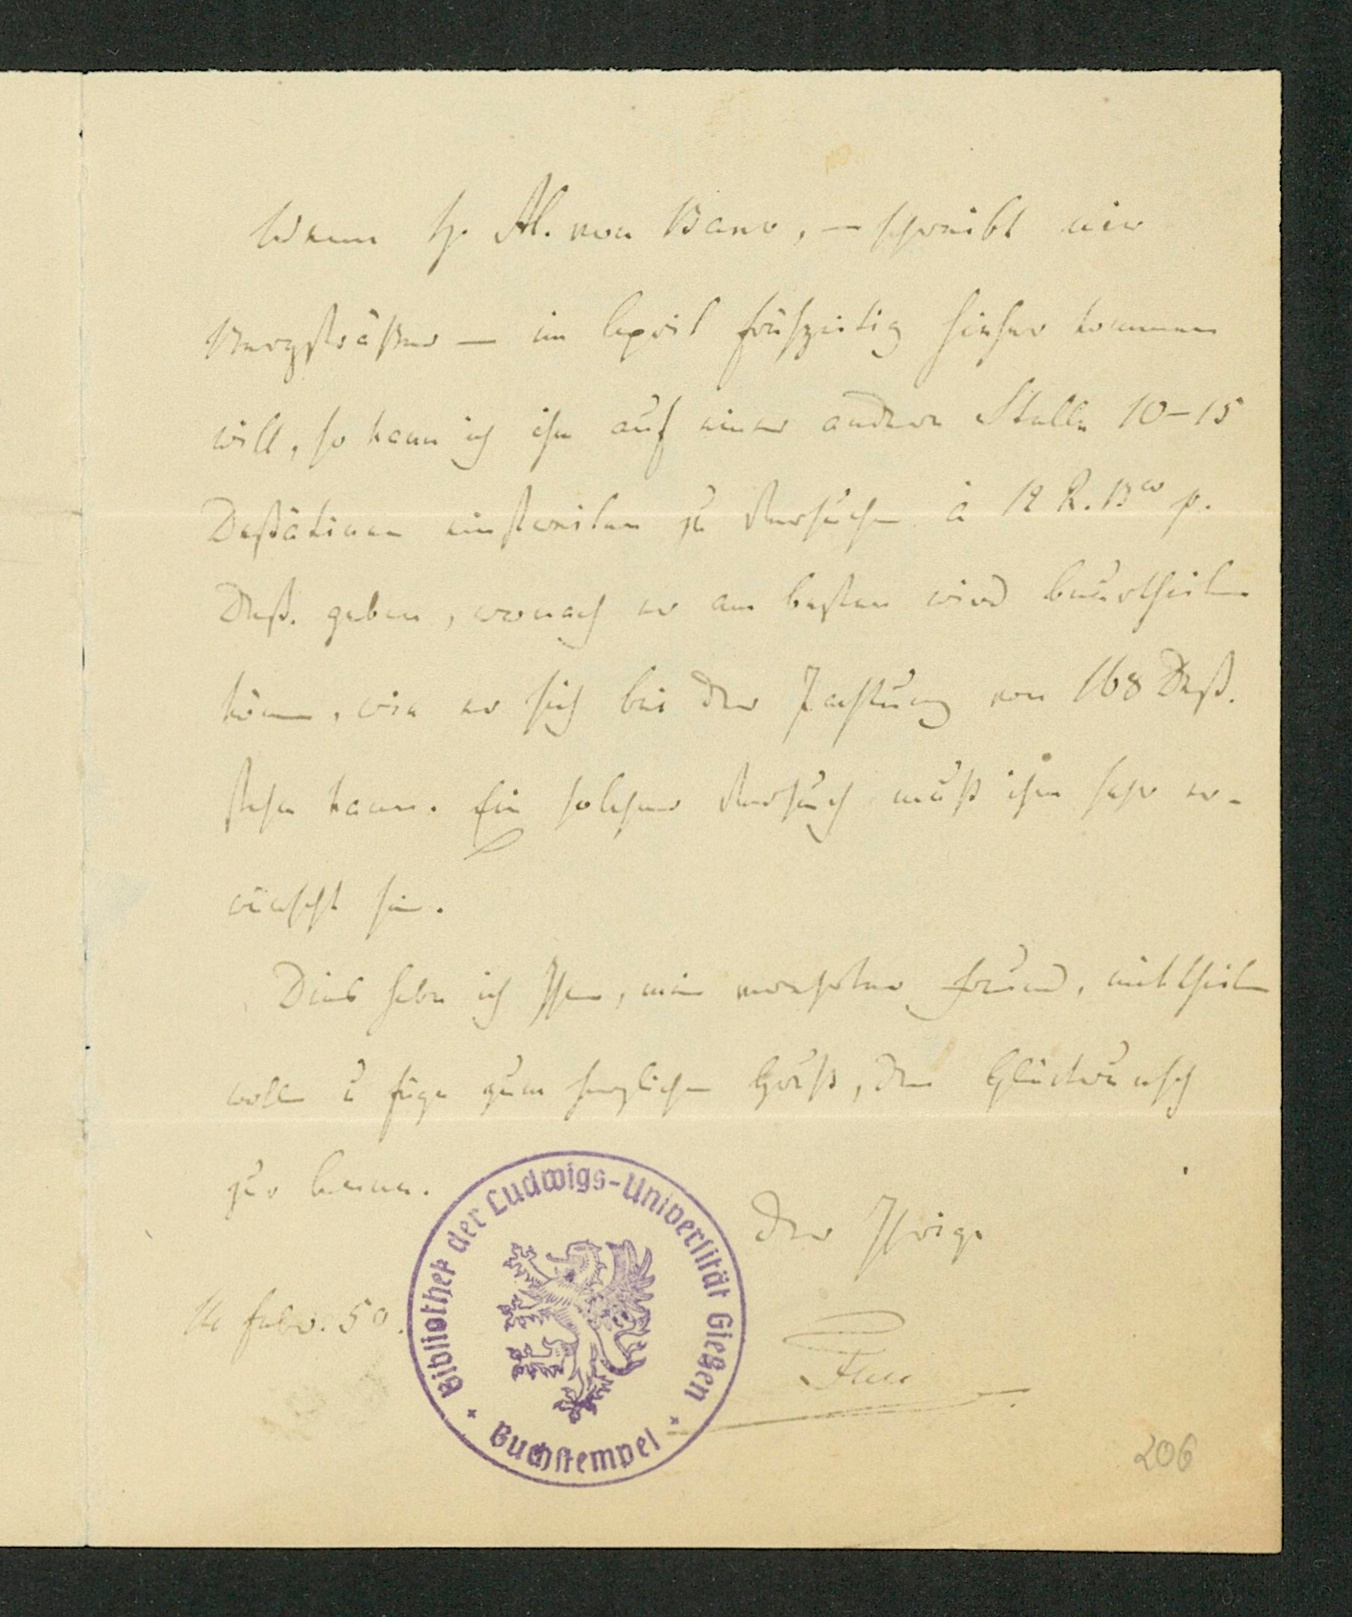 Wenn H. Al. von Baer, – schreibt mir
Bergsträßer – im April frühzeitig hieher kommen
will, so kann ich ihm auf einer andern Stelle 10–15
Deßätinen einstweilen zu Versuchen à 12 R. Bco p.
Deß. geben, wonach er am besten wird beurtheilen
können, wie er sich bei der Pachtung von 168 Deß.
stehn kann. Ein solcher Versuch muß ihm sehr er-
wünscht sein.
Dies habe ich Ihnen, mein verehrter Freund, mittheilen
wollen u füge zum herzlichen Gruß, den Glückwunsch
zur
Der Ihrige
Febr. 50.
Bibliothek der Ludwigs-Universität Gießen
Buchstempel
206